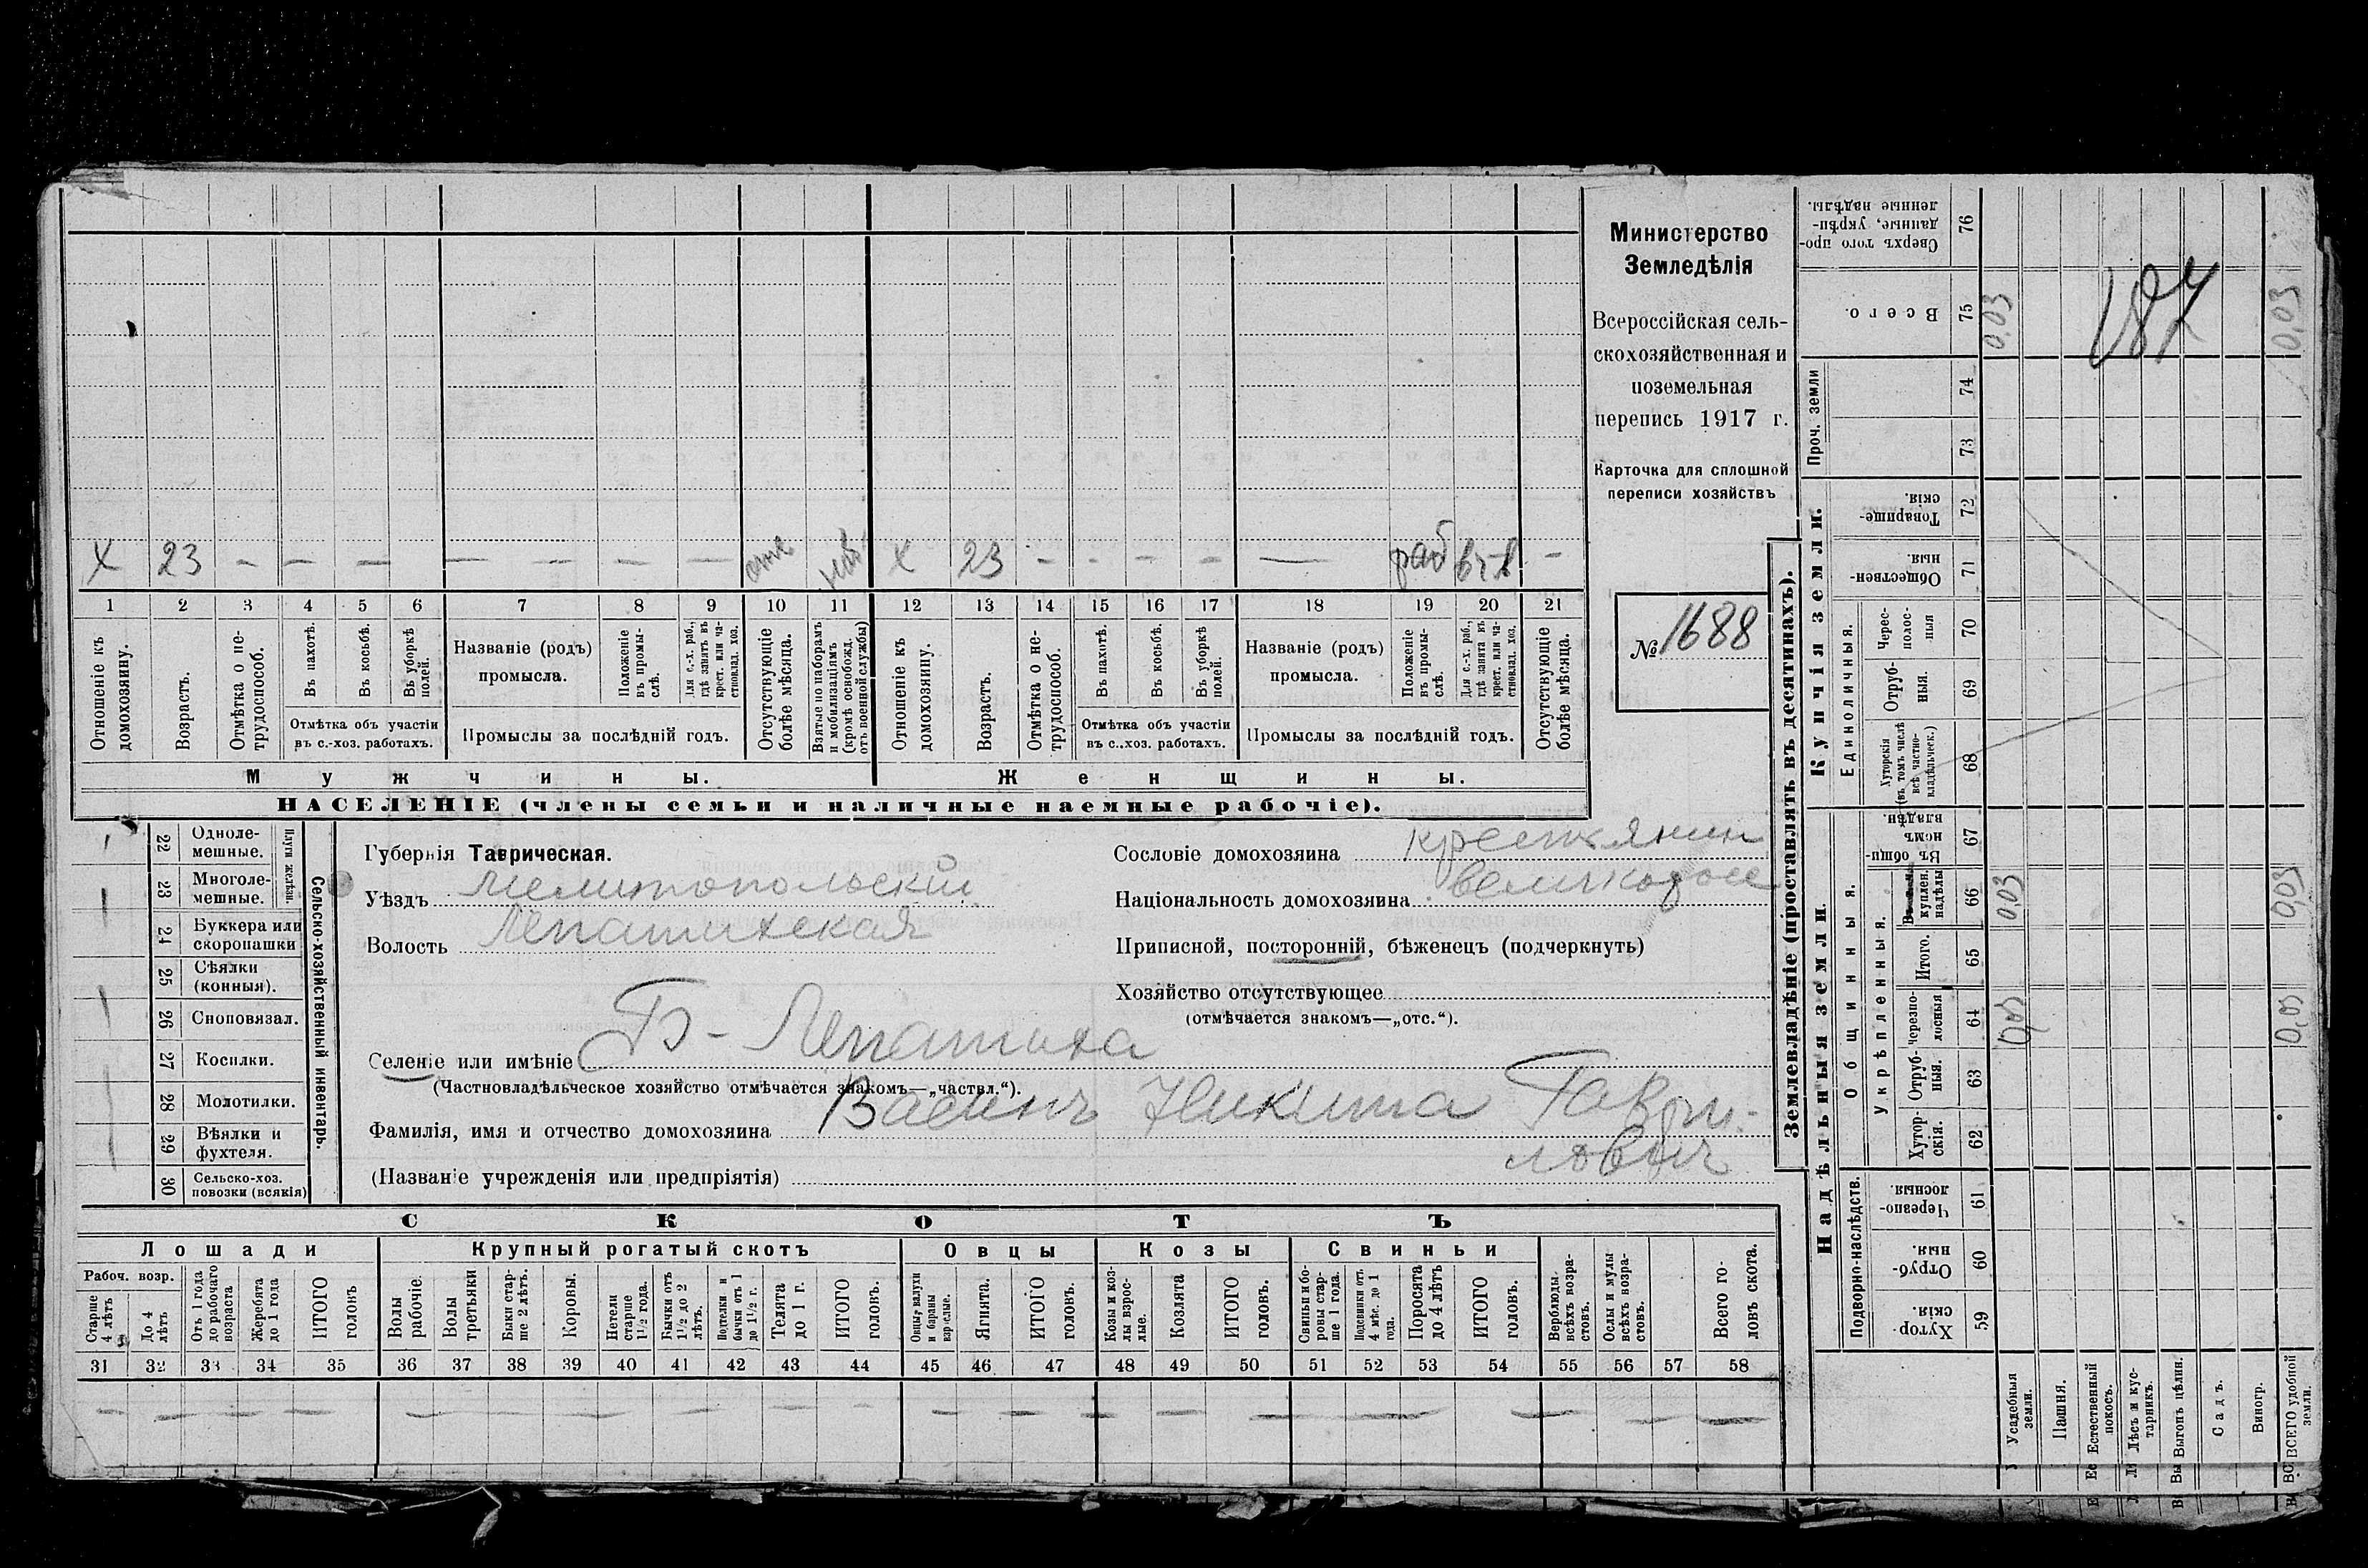 Министерство
Земледѣлія
Всероссійская сель-
скохозяйственная и
поземельная
перепись 1917 г.
Карточка для сплошной
переписи хозяйствъ
№ 1688
X 23 — — — — — — — X 23 — — — — — раб —
1 2 3 4 5 6 7 8 9 10 11 12 13 14 15 16 17 18 19 20 21
Отношеніе къ домохозяину.
Возрастъ.
Отмѣтка о не-трудоспособ.
Въ пахотѣ.
Въ косьбѣ.
Въ уборкѣ полей.
Отмѣтка объ участіи
въ с.-хоз. работахъ.
Названіе (родъ)
промысла.
Положеніе въ промы-слѣ.
Для с.-х. раб., гдѣ занятъ въ крест. или ча-стновлад. хоз.
Промыслы за послѣдній годъ.
Отсутствующіе болѣе мѣсяца.
Взятые по наборамъ и мобилизаціямъ (кромѣ освобожд. отъ военной службы)
Отношеніе къ домохозяину.
Возрастъ.
Отмѣтка о не-трудоспособ.
Въ пахотѣ.
Въ косьбѣ.
Въ уборкѣ полей.
Отмѣтка объ участіи
въ с.-хоз. работахъ.
Названіе (родъ)
промысла.
Положеніе въ промы-слѣ.
Для с.-х. раб., гдѣ занята въ крест. или ча-стновлад. хоз.
Промыслы за послѣдній годъ.
Отсутствующіе болѣе мѣсяца.
Мужчины. Женщины.
НАСЕЛЕНІЕ (члены семьи и наличные наемные рабочіе).
22 Одноле-мешные.
23 Многоле-мешные.
Плуги желѣзн.
24 Буккера или скоропашки
25 Сѣялки (конныя).
26 Сноповязал.
27 Косилки.
28 Молотилки.
29 Вѣялки и фухтеля.
30 Сельско-хоз. повозки (всякія)
Сельско-хозяйственный инвентарь.
Губернія Таврическая.
Уѣздъ Мелитопольскій
Волость Лепатихская
Селеніе или имѣніе Б-Лепатиха
(Частновладѣльческое хозяйство отмѣчается знакомъ—„частвл.“).
Фамилія, имя и отчество домохозяина Васинъ Никита Гаври-
ловичъ
(Названіе учрежденія или предпріятія)
Сословіе домохозяина крестянин
Національность домохозяина великорос
Приписной, посторонній, бѣженецъ (подчеркнуть)
Хозяйство отсутствующее
(отмѣчается знакомъ—„отс.“).
СКОТЪ
Лошади Крупный рогатый скотъ Овцы Козы Свиньи
Рабоч. возр.
Старше 4 лѣтъ
До 4 лѣтъ
Отъ 1 года до рабочаго возраста
Жеребята до 1 года
ИТОГО головъ
Волы рабочіе.
Волы третьяки
Быки стар-ше 2 лѣтъ.
Коровы.
Нетели старше 1 1/2 года.
Бычки отъ 1 1/2 до 2 лѣтъ.
Подтелки и бычки отъ 1 до 1 1/2 г.
Телята до 1 г.
ИТОГО головъ.
Овцы, валухи и бараны взрослые.
Ягнята.
ИТОГО головъ.
Козы и коз-лы взрос-лые.
Козлята
ИТОГО головъ.
Свиньи и бо-ровы стар-ше 1 года.
Подсвинки отъ 4 мѣс. до 1 года.
Поросята до 4 лѣтъ
ИТОГО головъ.
Верблюды всѣхъ возра-стовъ.
Ослы и мулы всѣхъ возра-стовъ.
Всего го-ловъ скота.
31 32 33 34 35 36 37 38 39 40 41 42 43 44 45 46 47 48 49 50 51 52 53 54 55 56 57 58
Землевладѣніе (проставлять въ десятинахъ).
Сверхъ того про-данные, укрѣп-ленные надѣлы. 76
Всего. 75 0,03 0,03
187
Проч. земли 74 73
Купчія земли.
Товарище-скія. 72
Обществен-ныя. 71
Единоличныя.
Черес-полос-ныя 70
Отруб-ныя. 69
Хуторскія (въ томъ числѣ всѣ частно-владѣльческ.) 68
Надѣльныя земли.
Общинныя.
Въ общи-номъ владѣн. 67
куплен. надѣлы 66 0,03 0,03
Укрѣпленныя.
Итого. 65
черезпо-лосныя 64
Отруб-ныя. 63
Хутор-скія. 62
Подворно-наслѣдств.
Черезпо-лосныя. 61
Отруб-ныя. 60
Хутор-скія. 59
Усадебныя земли.
Пашня.
Естественный покосъ.
Лѣсъ и кус-тарникъ.
Выгонъ цѣлин.
Садъ.
Виногр.
ВСЕГО удобной земли.